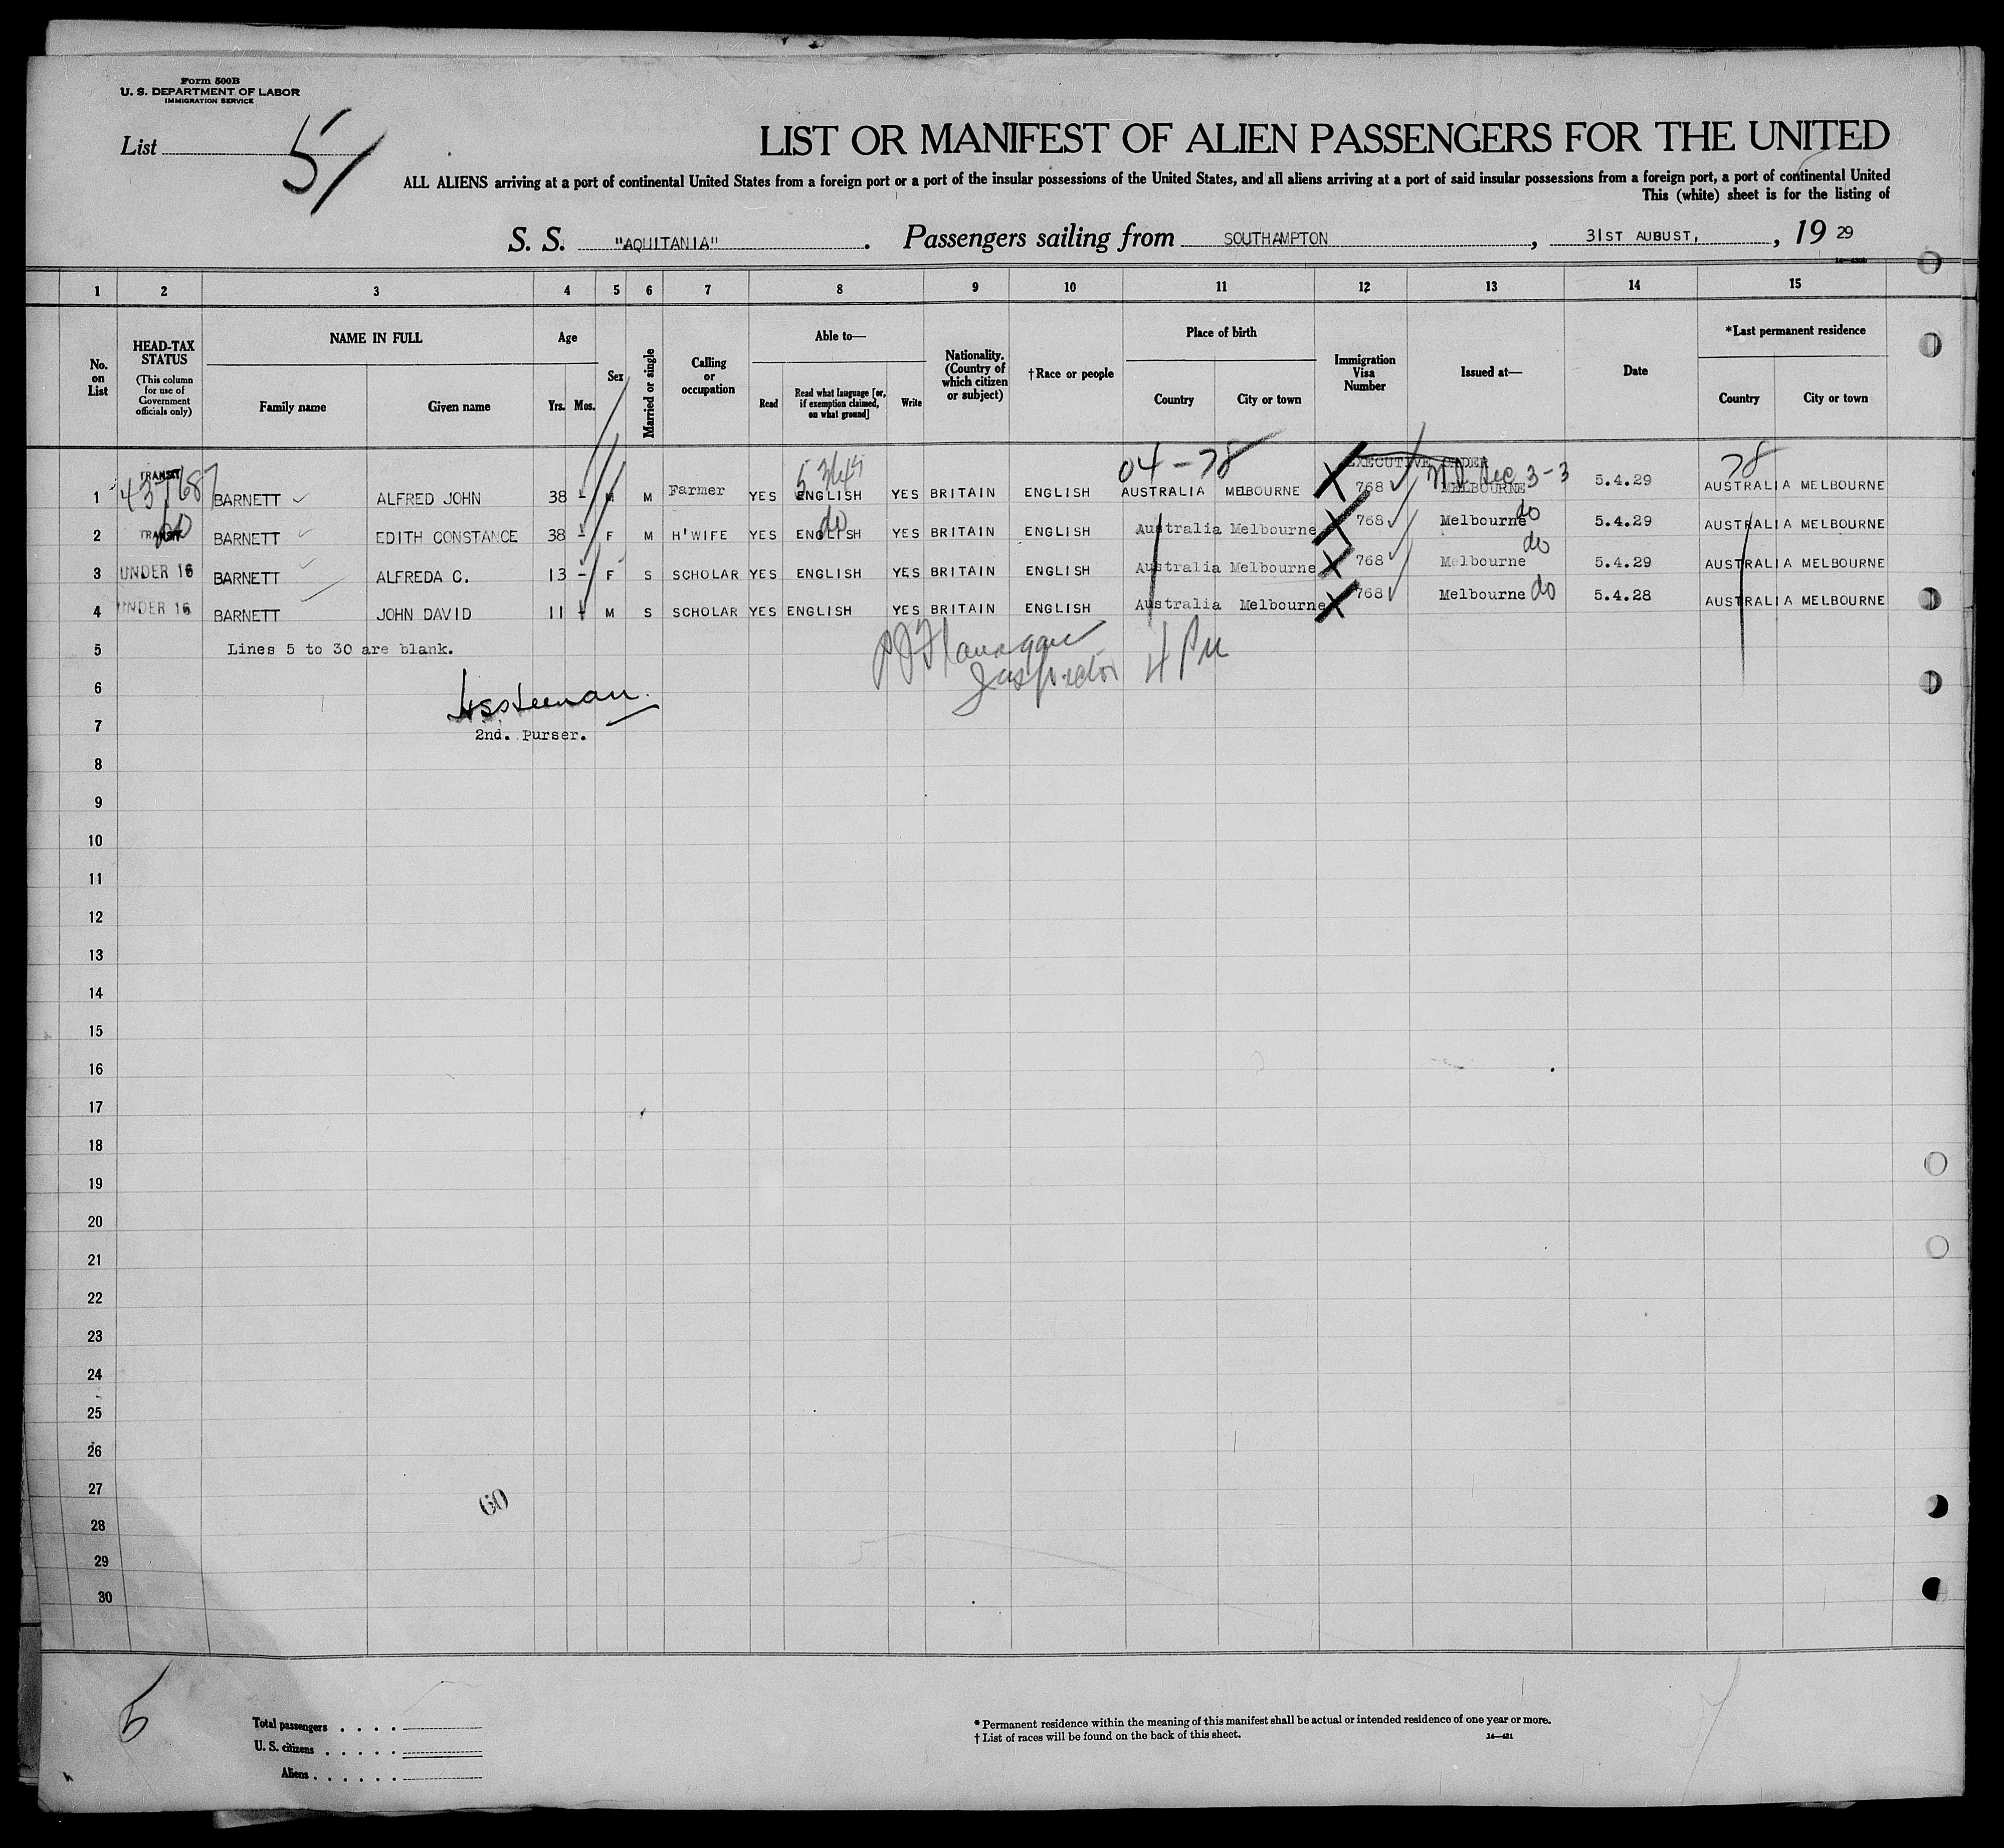 Form 500B
U. S. DEPARTMENT OF LABOR
IMMIGRATION SERVICE
List 51
LIST OR MANIFEST OF ALIEN PASSENGERS FOR THE UNITED
ALL ALIENS arriving at a port of continental United States from a foreign port or a port of the insular possessions of the United States, and all aliens arriving at a port of said insular possessions from a foreign port, a port of continental United
This (white) sheet is for the listing of
S. S. "AQUITANIA". Passengers sailing from SOUTHAMPTON, 31ST AUBUST, , 19 29
1 2 3 4 5 6 7 8 9 10 11 12 13 14 15
No. on List
HEAD-TAX STATUS (This column for use of Government officials only)
NAME IN FULL
Family name Given name
Age
Yrs. Mos.
Sex
Married or single
Calling or occupation
Able to—
Read
Read what language [or, if exemption claimed, on what ground]
Write
Nationality. (Country of which citizen or subject)
†Race or people
Place of birth
Country City or town
Immigration Visa Number
Issued at—
Date
*Last permanent residence
Country City or town
04-78 EXECUTIVE ORDER 78
1 TRANSIT BARNETT ALFRED JOHN 38 - M M Farmer YES ENGLISH YES BRITAIN ENGLISH AUSTRALIA MELBOURNE 768 MELBOURNE 3-3 5.4.29 AUSTRALIA MELBOURNE
2 TRANSIT do BARNETT EDITH CONSTANCE 38 - F M H'WIFE YES ENGLISH do YES BRITAIN ENGLISH Australia Melbourne 768 Melbourne do 5.4.29 AUSTRALIA MELBOURNE
3 UNDER 16 BARNETT ALFREDA C. 13 - F S SCHOLAR YES ENGLISH YES BRITAIN ENGLISH Australia Melbourne 768 Melbourne do 5.4.29 AUSTRALIA MELBOURNE
4 UNDER 16 BARNETT JOHN DAVID 11 M S SCHOLAR YES ENGLISH YES BRITAIN ENGLISH Australia Melbourne 768 Melbourne do 5.4.28 AUSTRALIA MELBOURNE
5 Lines 5 to 30 are blank.
Flanagan
6 Inspector
7 2nd. Purser.
8
9
10
11
12
13
14
15
16
17
18
19
20
21
22
23
24
25
26
27
60
28
29
30
5
Total passengers . . . .
U. S. citizens . . . . .
Aliens . . . . . .
* Permanent residence within the meaning of this manifest shall be actual or intended residence of one year or more.
† List of races will be found on the back of this sheet.
14—431